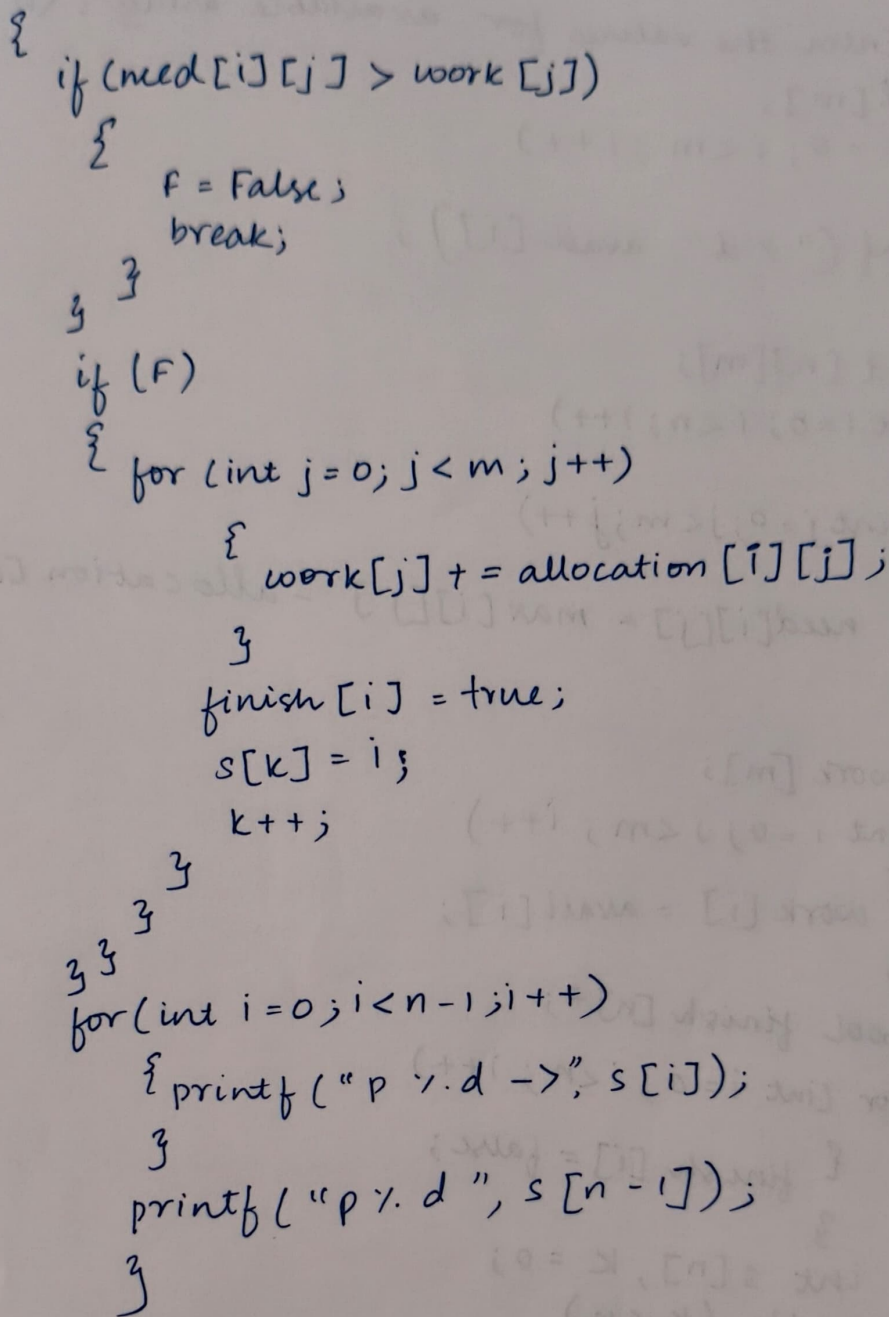 {
if (need [i] [j] > work [j])
{
F = False;
break;
}
}
if (F)
{ for (int j = 0; j < m; j++)
{
work[j] += allocation [i] [j];
}
finish [i] = true;
s[k] = i;
k++;
}
}
} }
for (int i = 0; i < n - 1; i++)
{ printf ("p %d ->", s[i]);
}
printf ("p %d", s [n - 1]);
}